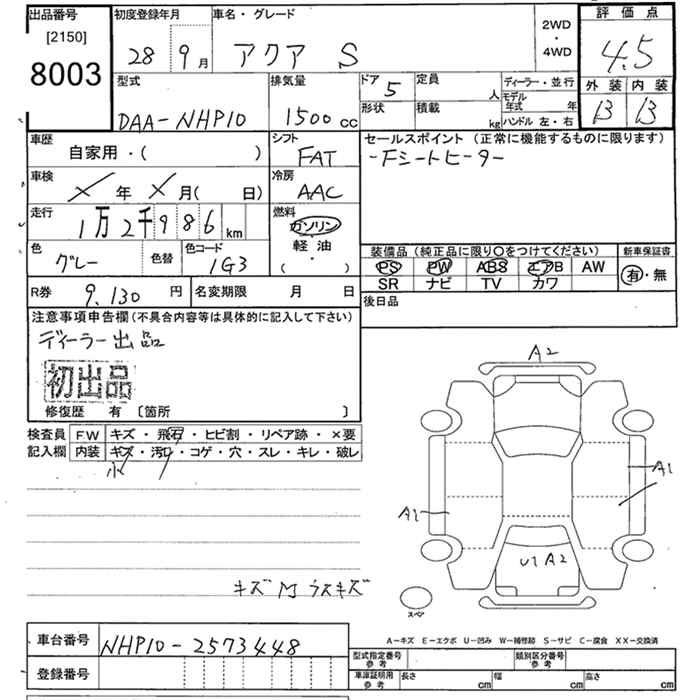 出品番号
[2150]
8003
初度登録年月
28 9月
車名・グレード
アクア S
2WD
・
4WD
評価点
4.5
外装 内装
B B
型式
DAA-NHP10
排気量
1500cc
ドア 5
形状
定員 人
積載 kg
ディーラー・並行
モデル年式 年
ハンドル 左・右
車歴
自家用・( )
シフト
FAT
セールスポイント (正常に機能するものに限ります)
-Fシートヒーター
車検
× 年 × 月( 日)
冷房
AAC
走行
1万2千986km
燃料
ガソリン
軽油
( ・ )
色
グレー
色替
色コード
1G3
装備品 (純正品に限り○をつけてください)
PS PW ABS エアB AW
SR ナビ TV カワ
新車保証書
有・無
R券 9,130 円
名変期限 月 日
後日品
注意事項申告欄 (不具合内容等は具体的に記入して下さい)
ディーラー出品
初出品
修復歴 有 〔箇所 〕
検査員 FW キズ・飛石・ヒビ割・リペア跡・×要
記入欄 内装 キズ・汚レ・コゲ・穴・スレ・キレ・破レ
A2
A1
A1
U1 A2
キズ M ラスキズ
スペア
A-キズ E-エクボ U-凹み W-補修跡 S-サビ C-腐食 XX-交換済
車台番号 NHP10-2573448
登録番号
型式指定番号 参考
類別区分番号 参考
車庫証明用 参考
長さ cm
幅 cm
高さ cm